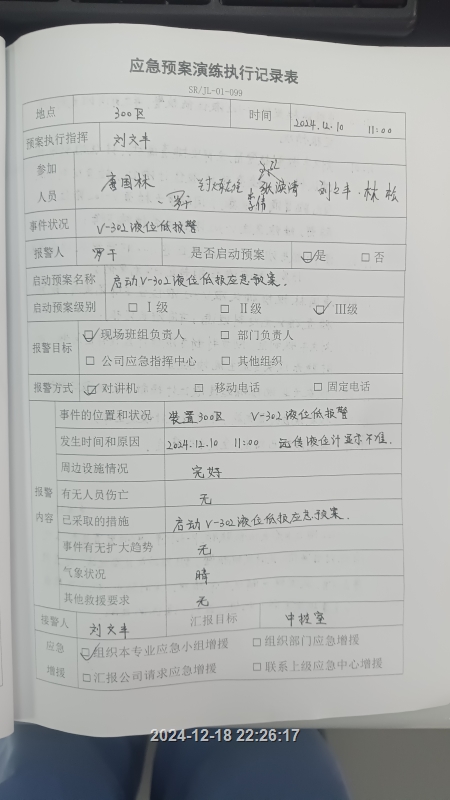 应急预案演练执行记录表
SR/JL-01-099
地点 300区 时间 2024.12.10 11:00
预案执行指挥 刘文丰
参加人员 唐国林 罗干 李倩 张滨涛 刘文丰 林松
事件状况 V-302液位低报警
报警人 罗干 是否启动预案 ☑是 □否
启动预案名称 启动V-302液位低报应急预案.
启动预案级别 □Ⅰ级 □Ⅱ级 ☑Ⅲ级
报警目标 ☑现场班组负责人 □部门负责人
□公司应急指挥中心 □其他组织
报警方式 ☑对讲机 □移动电话 □固定电话
报警内容
事件的位置和状况 装置300区 V-302液位低报警
发生时间和原因 2024.12.10 11:00 远传液位计显示不准.
周边设施情况 完好
有无人员伤亡 无
已采取的措施 启动V-302液位低报应急预案.
事件有无扩大趋势 无
气象状况 晴
其他救援要求 无
接警人 刘文丰 汇报目标 中控室
应急增援 ☑组织本专业应急小组增援 □组织部门应急增援
□汇报公司请求应急增援 □联系上级应急中心增援
2024-12-18 22:26:17